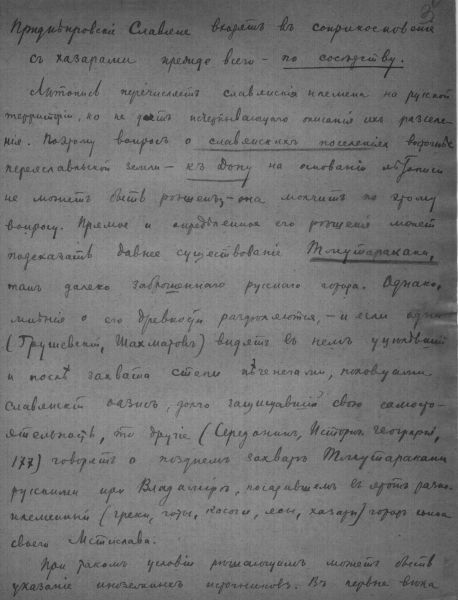 Приднѣпровскіе Славяне входятъ въ соприкосновеніе
съ хазарами прежде всего – по сосѣдству.
Лѣтопись перечисляетъ славянскія племена на русской
территоріи, но не даетъ исчерпывающаго описанія ихъ разселе-
нія. Поэтому вопросъ о славянскихъ поселеніяхъ восточнѣе
переяславльской земли – къ Дону на основаніи лѣтописи
не можетъ быть рѣшенъ, – она молчитъ по этому
вопросу. Прямое и опредѣленное его рѣшеніе можетъ
подсказать давнее существованіе Тмутаракани,
такъ далеко заброшеннаго русскаго города. Однако,
мнѣнія о его древности раздѣляются, – и если одни
(Грушевскій, Шахматовъ) видятъ въ немъ уцѣлѣвшій
и послѣ захвата степи печенѣгами, половцами
славянскій оазисъ, долго защищавшій свою самосто-
ятельность, то другіе (Середонинъ, Историч. географія,
177) говорятъ о позднемъ захватѣ Тмутаракани
русскими при Владимірѣ, посадившемъ въ этотъ разно-
племенный (греки, готы, касоги, ясы, хазары) городъ сына
своего Мстислава.
При такомъ условіи рѣшающимъ можетъ быть
указаніе иноземныхъ источниковъ. Въ первые вѣка